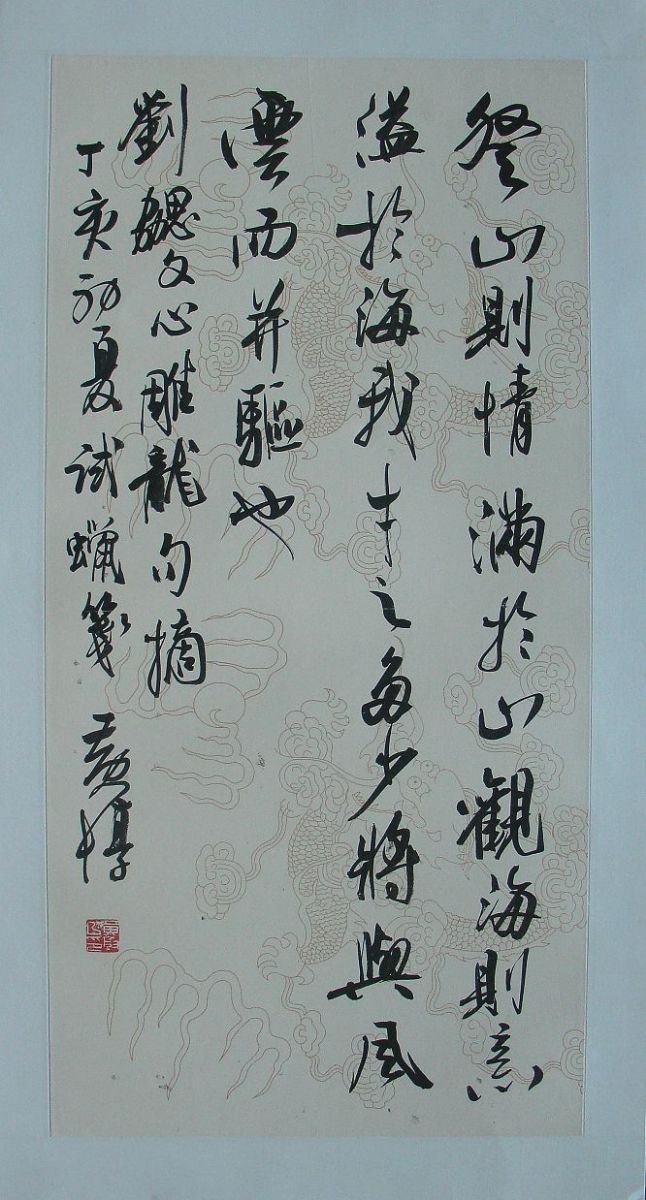 登山則情滿於山觀海則意
溢於海我才之多少將與風
雲而并驅也
劉勰文心雕龍句摘
丁亥初夏試蠟箋黃惇